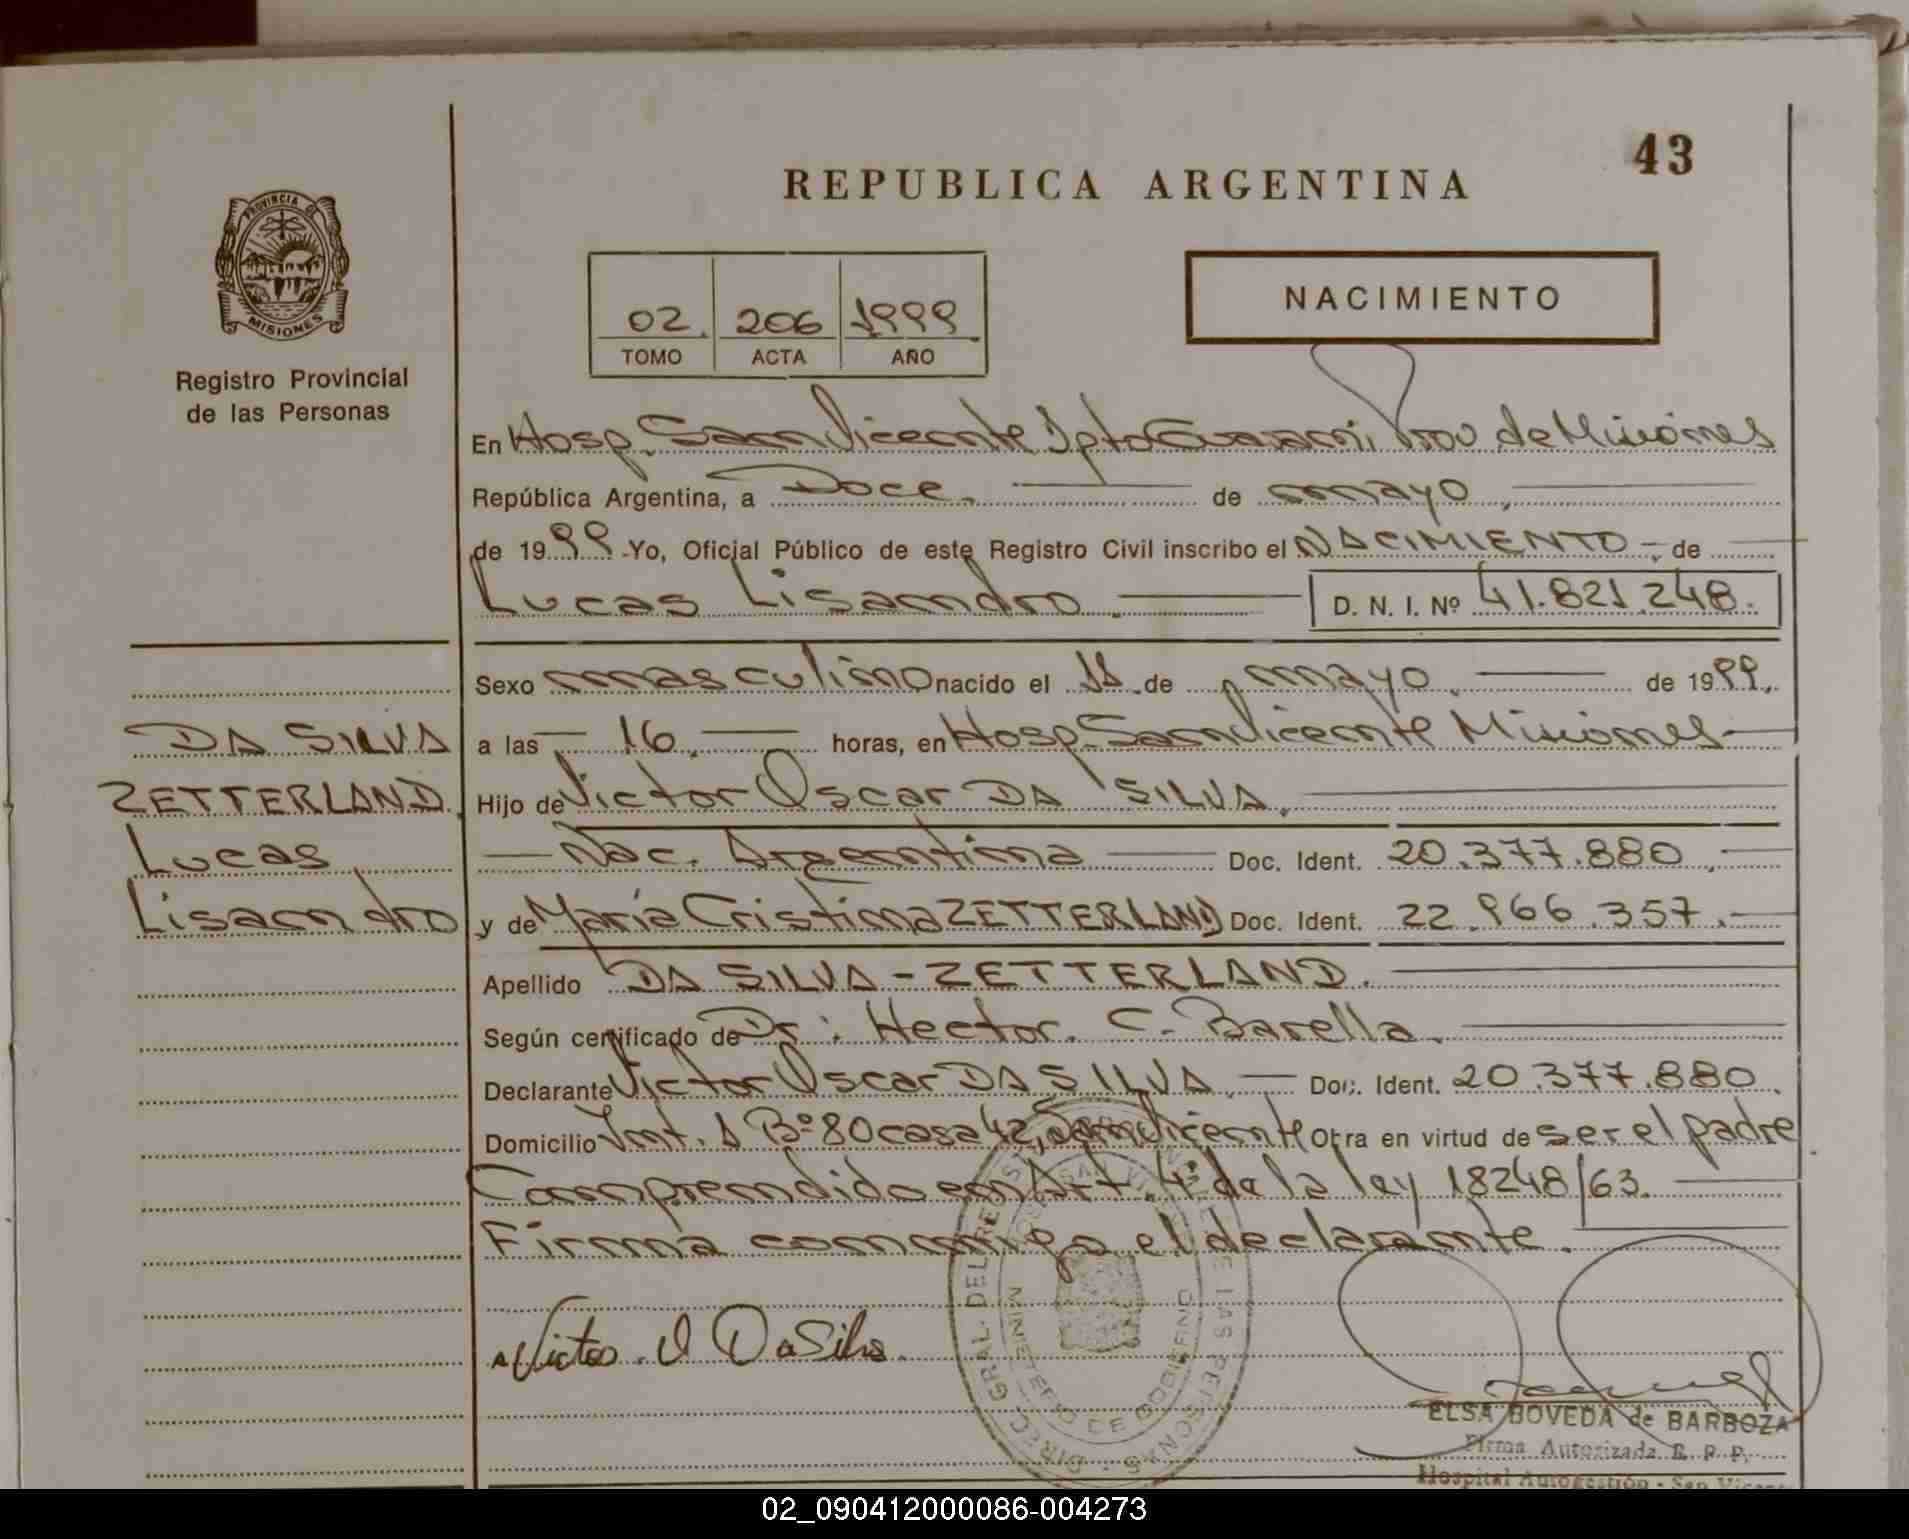 43
REPUBLICA ARGENTINA
PROVINCIA DE
MISIONES
Registro Provincial
de las Personas
02. 206 1999
TOMO ACTA AÑO
NACIMIENTO
En Hosp. San Vicente Dpto Guaraní, Prov de Misiones
República Argentina, a Doce. de mayo,
de 1999 - Yo, Oficial Público de este Registro Civil inscribo el NACIMIENTO - de
Lucas Lisandro. D. N. I. Nº 41.821.248.
Sexo masculino nacido el 11 de mayo. de 1999.
a las 16. horas, en Hosp. San Vicente Misiones
Hijo de Victor Oscar DA SILVA.
Nac. Argentina Doc. Ident. 20.377.880
y de María Cristina ZETTERLAND Doc. Ident. 22.966.357.
Apellido DA SILVA - ZETTERLAND.
Según certificado de Dr: Hector. C. Barella.
Declarante Victor Oscar DA SILVA. Doc. Ident. 20.377.880.
Domicilio Int. A Bº 80 casa 42, San Vicente Obra en virtud de ser el padre
Comprendido en Art. 4º de la ley 18248/63.
Firma conmigo el declarante.
DA SILVA
ZETTERLAND.
Lucas
Lisandro
Victor. O Da Silva.
DIRECC. GRAL. DEL REGISTRO DE LAS PERSONAS
MINISTERIO DE GOBIERNO
ELSA BOVEDA de BARBOZA
Firma Autorizada R. P. P.
Hospital Autogestión - San Vicente
02_090412000086-004273